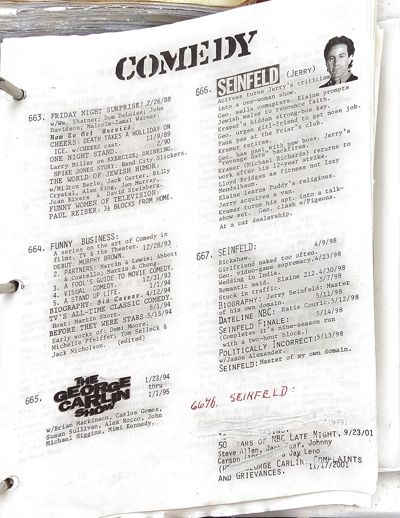 COMEDY
663. FRIDAY NIGHT SURPRISE! 2/26/88
w/Wm. Shatner, Dom DeLuise, John
Davidson, Malcolm-Jamal Warner.
How We Got Started.
CHEERS: DEATH TAKES A HOLLIDAY ON 11/9/89
ICE. w/CHEERS cast. 2/90
ONE NIGHT STAND.
Larry Miller on EXERCISE; DRINKING.
SPIKE JONES STORY: Band City Slickers.
THE WORLD OF JEWISH HUMOR. 2/90
w/Milton Berle, Jack Carter, Billy
Crystal, Alan King, Jan Murray,
Joan Rivers & David Steinberg.
FUNNY WOMEN OF TELEVISION.
PAUL REISER: 3½ BLOCKS FROM HOME.
664. FUNNY BUSINESS:
A series on the art of Comedy in
films, TV & the Theater. 12/28/93
DEBUT: MURPHY BROWN.
2. PARTNERS: Martin & Lewis; Abbott
& Costello; Martin & Short.
3. A FOOL'S GUIDE TO MOVIE COMEDY.
1. VISUAL COMEDY. 1/1/94
5. A STAND UP LIFE. 1/13/93
BIOGRAPHY: Sid Caesar. 4/12/94
TV'S ALL-TIME CLASSIC COMEDY.
Host: Martin Short. 5/1/94
BEFORE THEY WERE STARS: 5/15/94
Early works of: Demi Moore,
Michelle Pfeiffer, Tom Selleck &
Jack Nicholson. (edited)
665. THE GEORGE CARLIN SHOW 1/23/94
thru
1/1/95
w/Brian Markinson, Carlos Gomez,
Susan Sullivan, Alex Rocco, John
Michael Higgins, Mimi Kennedy.
666. SEINFELD (JERRY)
Actress turns Jerry's criticism
into a one-woman show.
Geo. sells computers. Elaine prompts
Jewish males to renounce faith.
Kramer's hidden strong-box key.
Geo. urges girl-friend to get nose job.
Faux pas at the Friar's club.
Kramer retires.
Geo. has sex with new boss. Jerry's
"revenge date" backfires.
Kramer (Michael Richards) returns to
work after his 12-year strike.
Lloyd Bridges as fitness nut Izzy
Mandelbaum.
Elaine learns Puddy's religious.
Jerry acquires a van.
Kramer turns his apt. into a talk-
show set. Geo. clash w/Pigeons.
At a car dealership.
667. SEINFELD:
Rickshaw. 4/9/98
Girlfriend naked too often.
Geo. video-game supremacy. 4/23/98
Wedding in India.
Romantic maid. Elaine 212. 4/30/98
Stuck in traffic. 5/7/98
BIOGRAPHY: Jerry Seinfeld: Master
of his own domain. 5/11/98
DATELINE NBC: Katie Couric. 5/12/98
SEINFELD FINALE: 5/14/98
(Completes it's nine-season run
with a two-hour block.)
POLITICALLY INCORRECT: 5/13/98
w/Jason Alexander.
SEINFELD: Master of my own domain.
667½. SEINFELD:
1999)
50 YEARS OF NBC LATE NIGHT, 9/23/01
Steve Allen, Jack Paar, Johnny
Carson & Jay Leno
GEORGE CARLIN: COMPLAINTS
AND GRIEVANCES. 11/17/2001